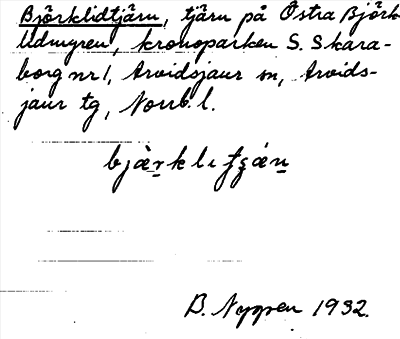 Björklidtjärn, tjärn på Östra Björk-
lidmyren, kronoparken S. Skara-
borg nr 1, Arvidsjaur sn, Arvids-
jaur tg, Norrb. l.
B. Nygren 1932.